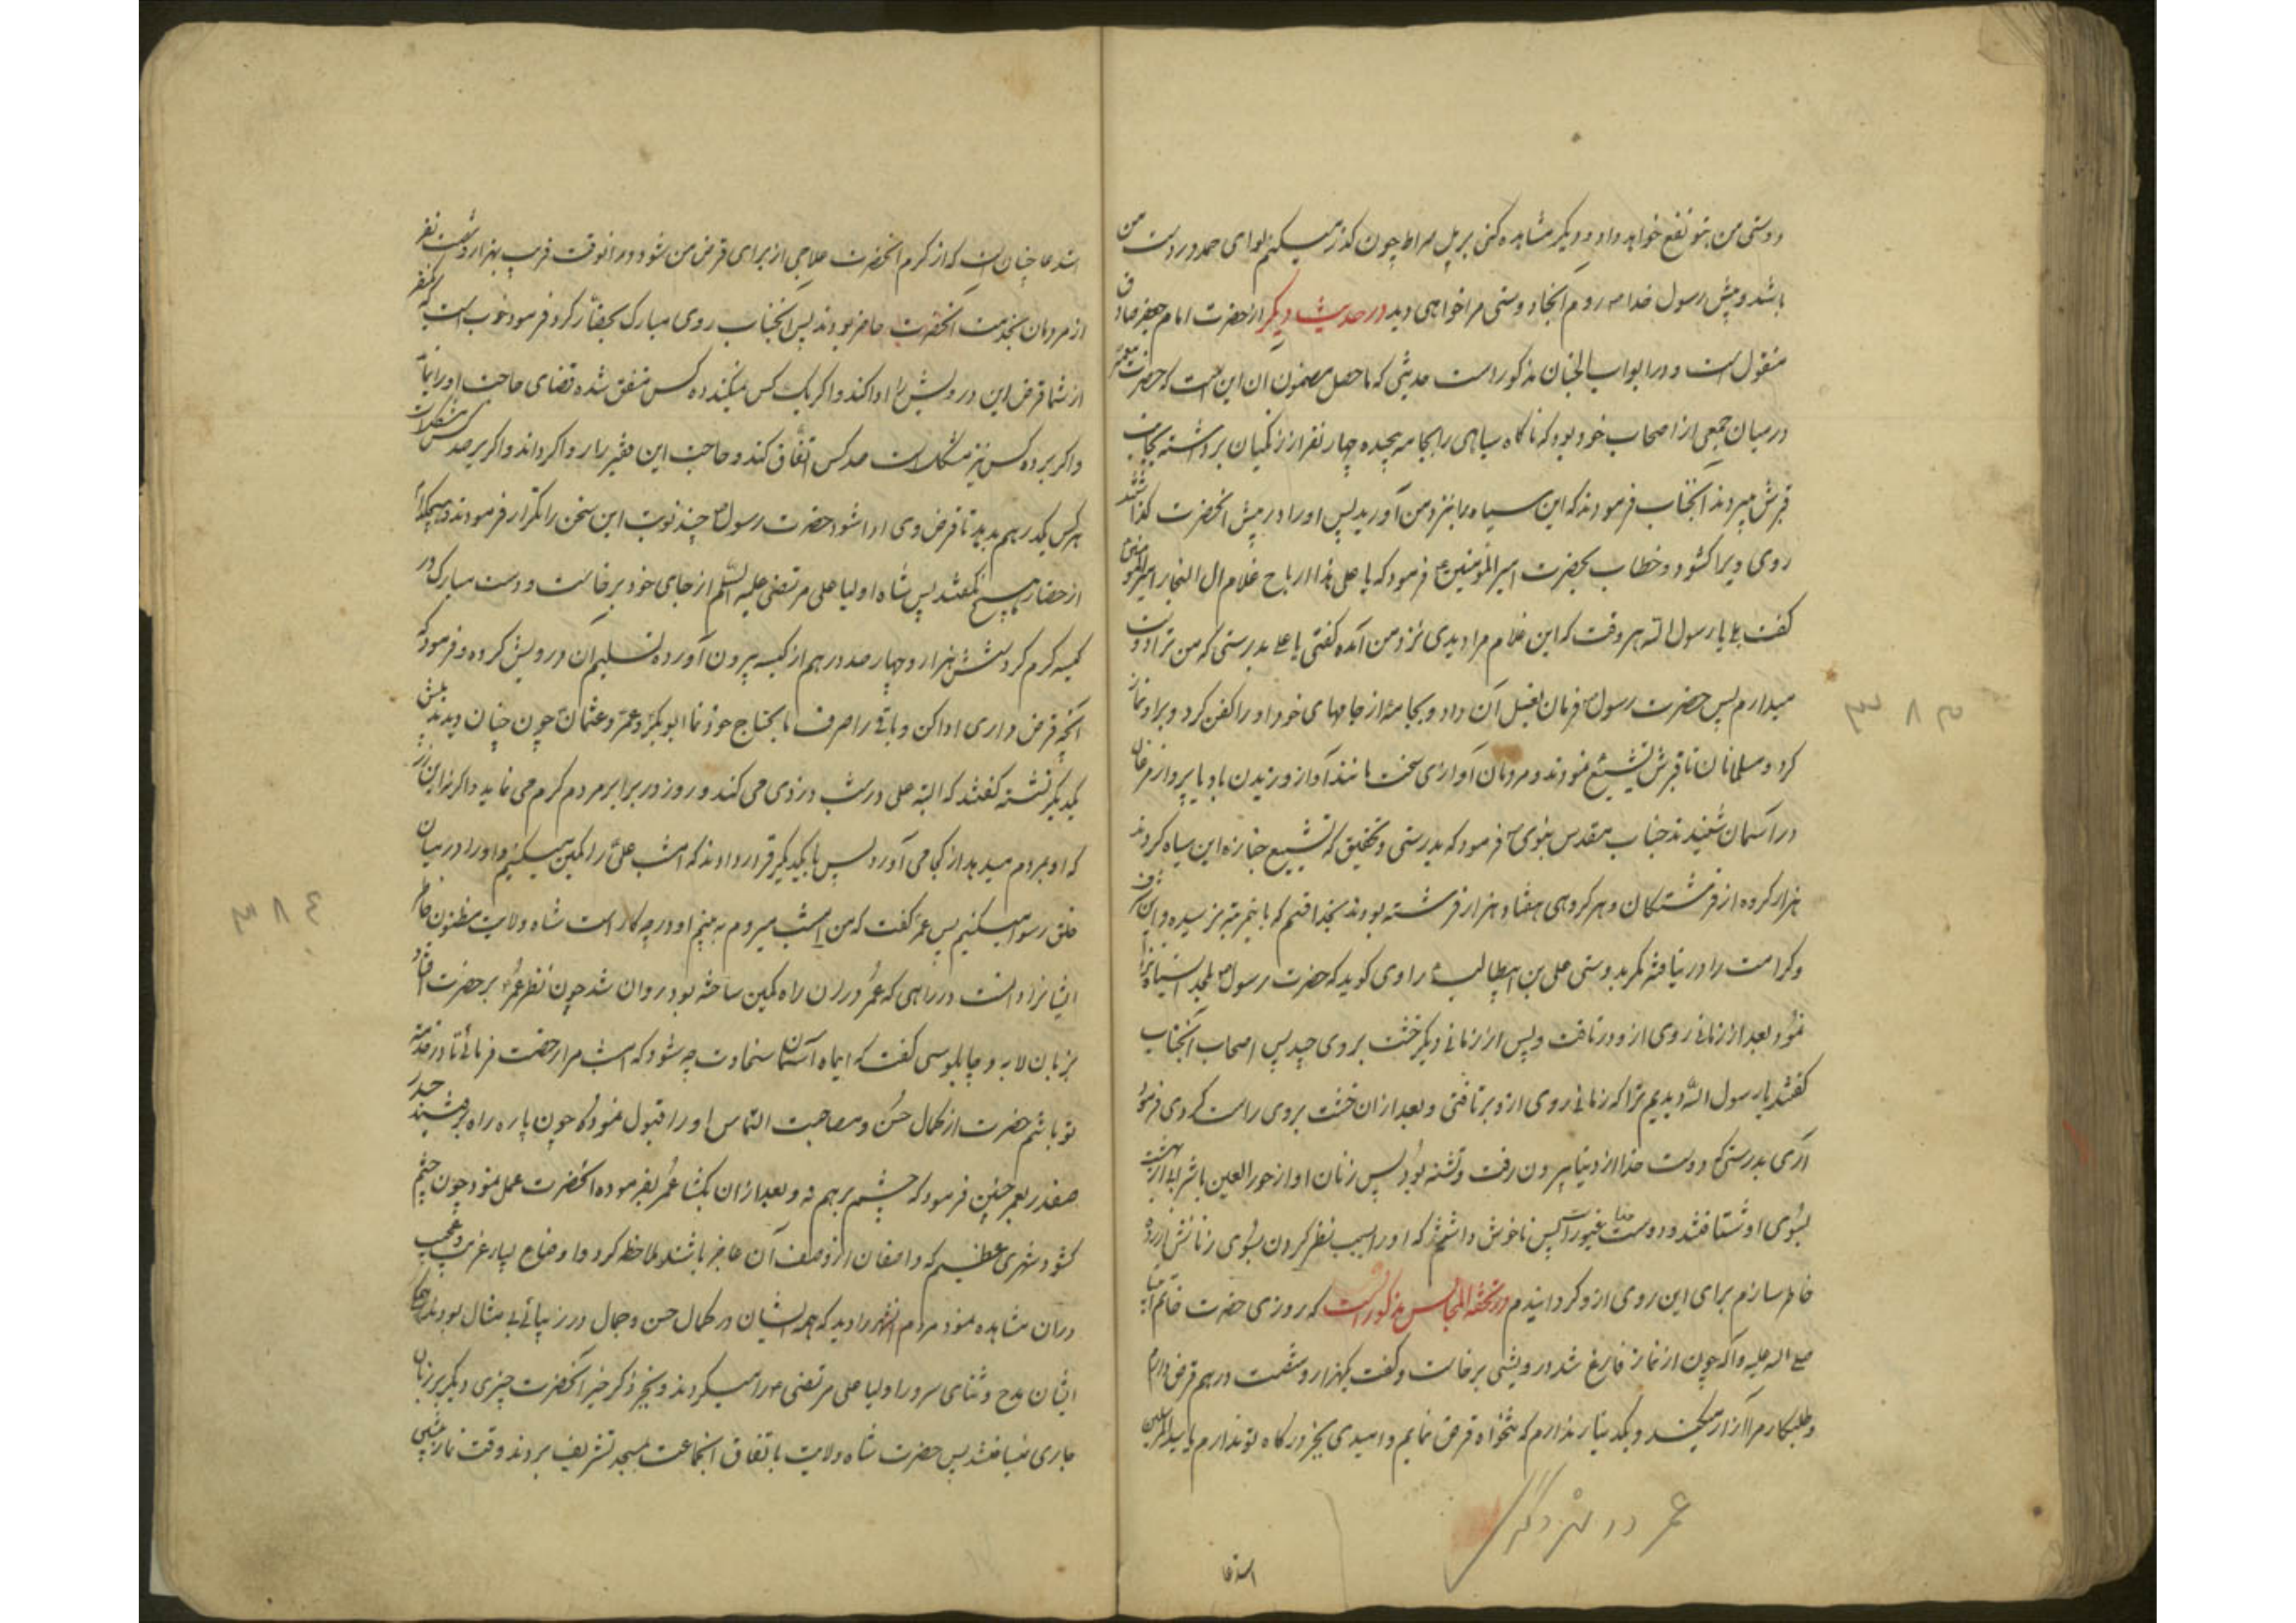 دوستی من بتو نفع خواهد داد و دیگر مشاهده کنی بر پل صراط چون گذر میکنم لوای حمد در دست من
باشد و پیش رسول خدا میروم انجا دوستی مرا خواهی دید در حدیث دیگر از حضرت امام جعفر صادق
منقول است و در ابواب الجنان مذکور است حدیثی که ماحصل مضمون ان این است که حضرت پیغمبر
در میان جمعی از اصحاب خود بود که ناگاه سیاهی را بجامه پیچیده چهار نفر از زنگیان برداشته بجانب
قبرش میبردند آنجناب فرمودند که این سیاه را بنزد من آورید پس او را در پیش انحضرت گذاشتند
روی ویرا گشود و خطاب بحضرت امیرالمؤمنین فرمود که یا علی هذا رباح غلام ال النجار امیرالمومنین
گفت بلی یا رسول الله هر وقت که این غلام مرا دیدی نزد من آمده گفتی یا علی بدرستی که من ترا دوست
میدارم پس حضرت رسول فرمان بغسل آن داد و بجامه از جامهای خود او را کفن کرد و بر او نماز
کرد و مسلمانان تا قبرش تشییع نمودند و مردمان آوازی سخت مانند آواز وزیدن باد یا پرواز مرغان
در آسمان شنیدند جناب مقدس نبوی فرمود که بدرستی و تحقیق که تشییع جنازه این سیاه کردند
هزار گروه از فرشتگان و هر گروهی هفتاد هزار فرشته بودند بخدا قسم که باین مرتبه نرسیده و این شرف
و کرامت را در نیافته مگر بدوستی علی بن ابیطالب راوی گوید که حضرت رسول بلحد
نمود بعد از زمانی روی ازو در تافت و پس از زمانی دیگر خشت بر وی چید پس اصحاب آنجناب
گفتند یا رسول الله دیدیم ترا که زمانی روی ازو برتافتی و بعد از ان خشت بر وی راست کردی فرمود
آری بدرستی که دوست خدا از دنیا بیرون رفت و تشنه بود پس زنان او از حورالعین با شرابهای بهشت
بسوی او شتافتند و دوست خدا غیور است پس ناخوش داشتم که او را بسبب نظر کردن بسوی زنانش آزرده
خاطر سازم برای این روی ازو گردانیدم در تحفه المجالس مذکور است که روزی حضرت خاتم انبیا
صلی الله علیه و آله چون از نماز فارغ شد درویشی برخاست و گفت یکهزار و شصت درهم قرض دارم
و طلبکار مرا آزار میکند و یکدینار ندارم که بتنخواه قرض نمایم و امیدی بجز درگاه تو ندارم یا سید المرسلین
عمر در شهر دگر
استدعا
٣٨٥
استدعا چنان است که از کرم انحضرت علاجی از برای قرض من شود در انوقت قریب بهزار و شصت نفر
از مردمان بخدمت انحضرت حاضر بودند پس آنجناب روی مبارک بحضار کرد و فرمود خوب است که یکنفر
از شما قرض این درویش را ادا کند و اگر یک کس نمیکند ده کس متفق شده قضای حاجت او را نماید
و اگر بر ده کس نیز مشکلست صد کس اتفاق کند و حاجت این فقیر را روا گرداند و اگر بر صد کس مشکلست
هر کس یکدرهم بدهید تا قرض وی ادا شود حضرت رسول چند نوبت این سخن را تکرار فرمودند و هیچکدام
از حضار هیچ نگفتند پس شاه اولیا علی مرتضی علیه السلم از جای خود برخاست و دست مبارک در
کیسه کرم کرد شش هزار و چهار صد درهم از کیسه بیرون آورده تسلیم آن درویش کرده و فرمود که
آنچه قرض داری ادا کن و باقی را صرف مایحتاج خود نما ابوبکر و عمر و عثمان چون چنان دیدند پیش
یکدیگر نشسته گفتند که البته علی در شب دزدی می کند و روز در برابر مردم کرم می نماید و اگر نه این زر
که او بمردم میدهد از کجا می آورد پس با یکدیگر قرار دادند که امشب علی را کمین میکنیم و او را در میان
خلق رسوا میکنیم پس عمر گفت که من امشب میروم به بینم او در چه کار است شاه ولایت مظنون خاطر
ایشانرا دانست در راهی که عمر در ان راه کمین ساخته بود روان شد چون نظر عمر بر حضرت افتاد
بزبان لابه و چاپلوسی گفت که ای ماه آسمان سخاوت چه شود که امشب مرا رخصت فرمائی تا در خدمت
تو باشم حضرت از کمال حسن مصاحبت التماس او را قبول نمود که چون پاره راه برفتند حیدر
صفدر بعمر چنین فرمود که چشم بر هم نه و بعد از ان بگشا عمر بفرموده انحضرت عمل نمود چون چشم
گشود شهری عظیم که واصفان از وصف آن عاجز باشند ملاحظه کرد و اوضاع بسیار غریب و عجیب
در ان مشاهده نمود مردم انشهر را دید که همه ایشان در کمال حسن و جمال و در زیبائی بی مثال بودند
ایشان مدح و ثنای سرور اولیا علی مرتضی را میکردند و بجز ذکر خیر انحضرت چیزی دیگر بر زبان
جاری نمیساختند پس حضرت شاه ولایت باتفاق انجماعت بمسجد تشریف بردند وقت نماز پیشی
٣٨٤